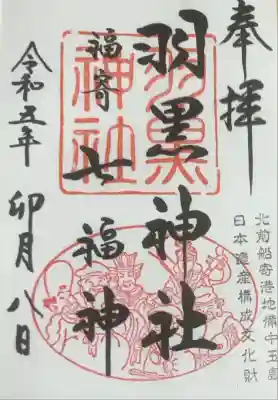 奉拝
北前船寄港地備中玉島
日本遺産構成文化財
羽黒神社
羽黒神社
福寄 七福神
令和五年 卯月八日